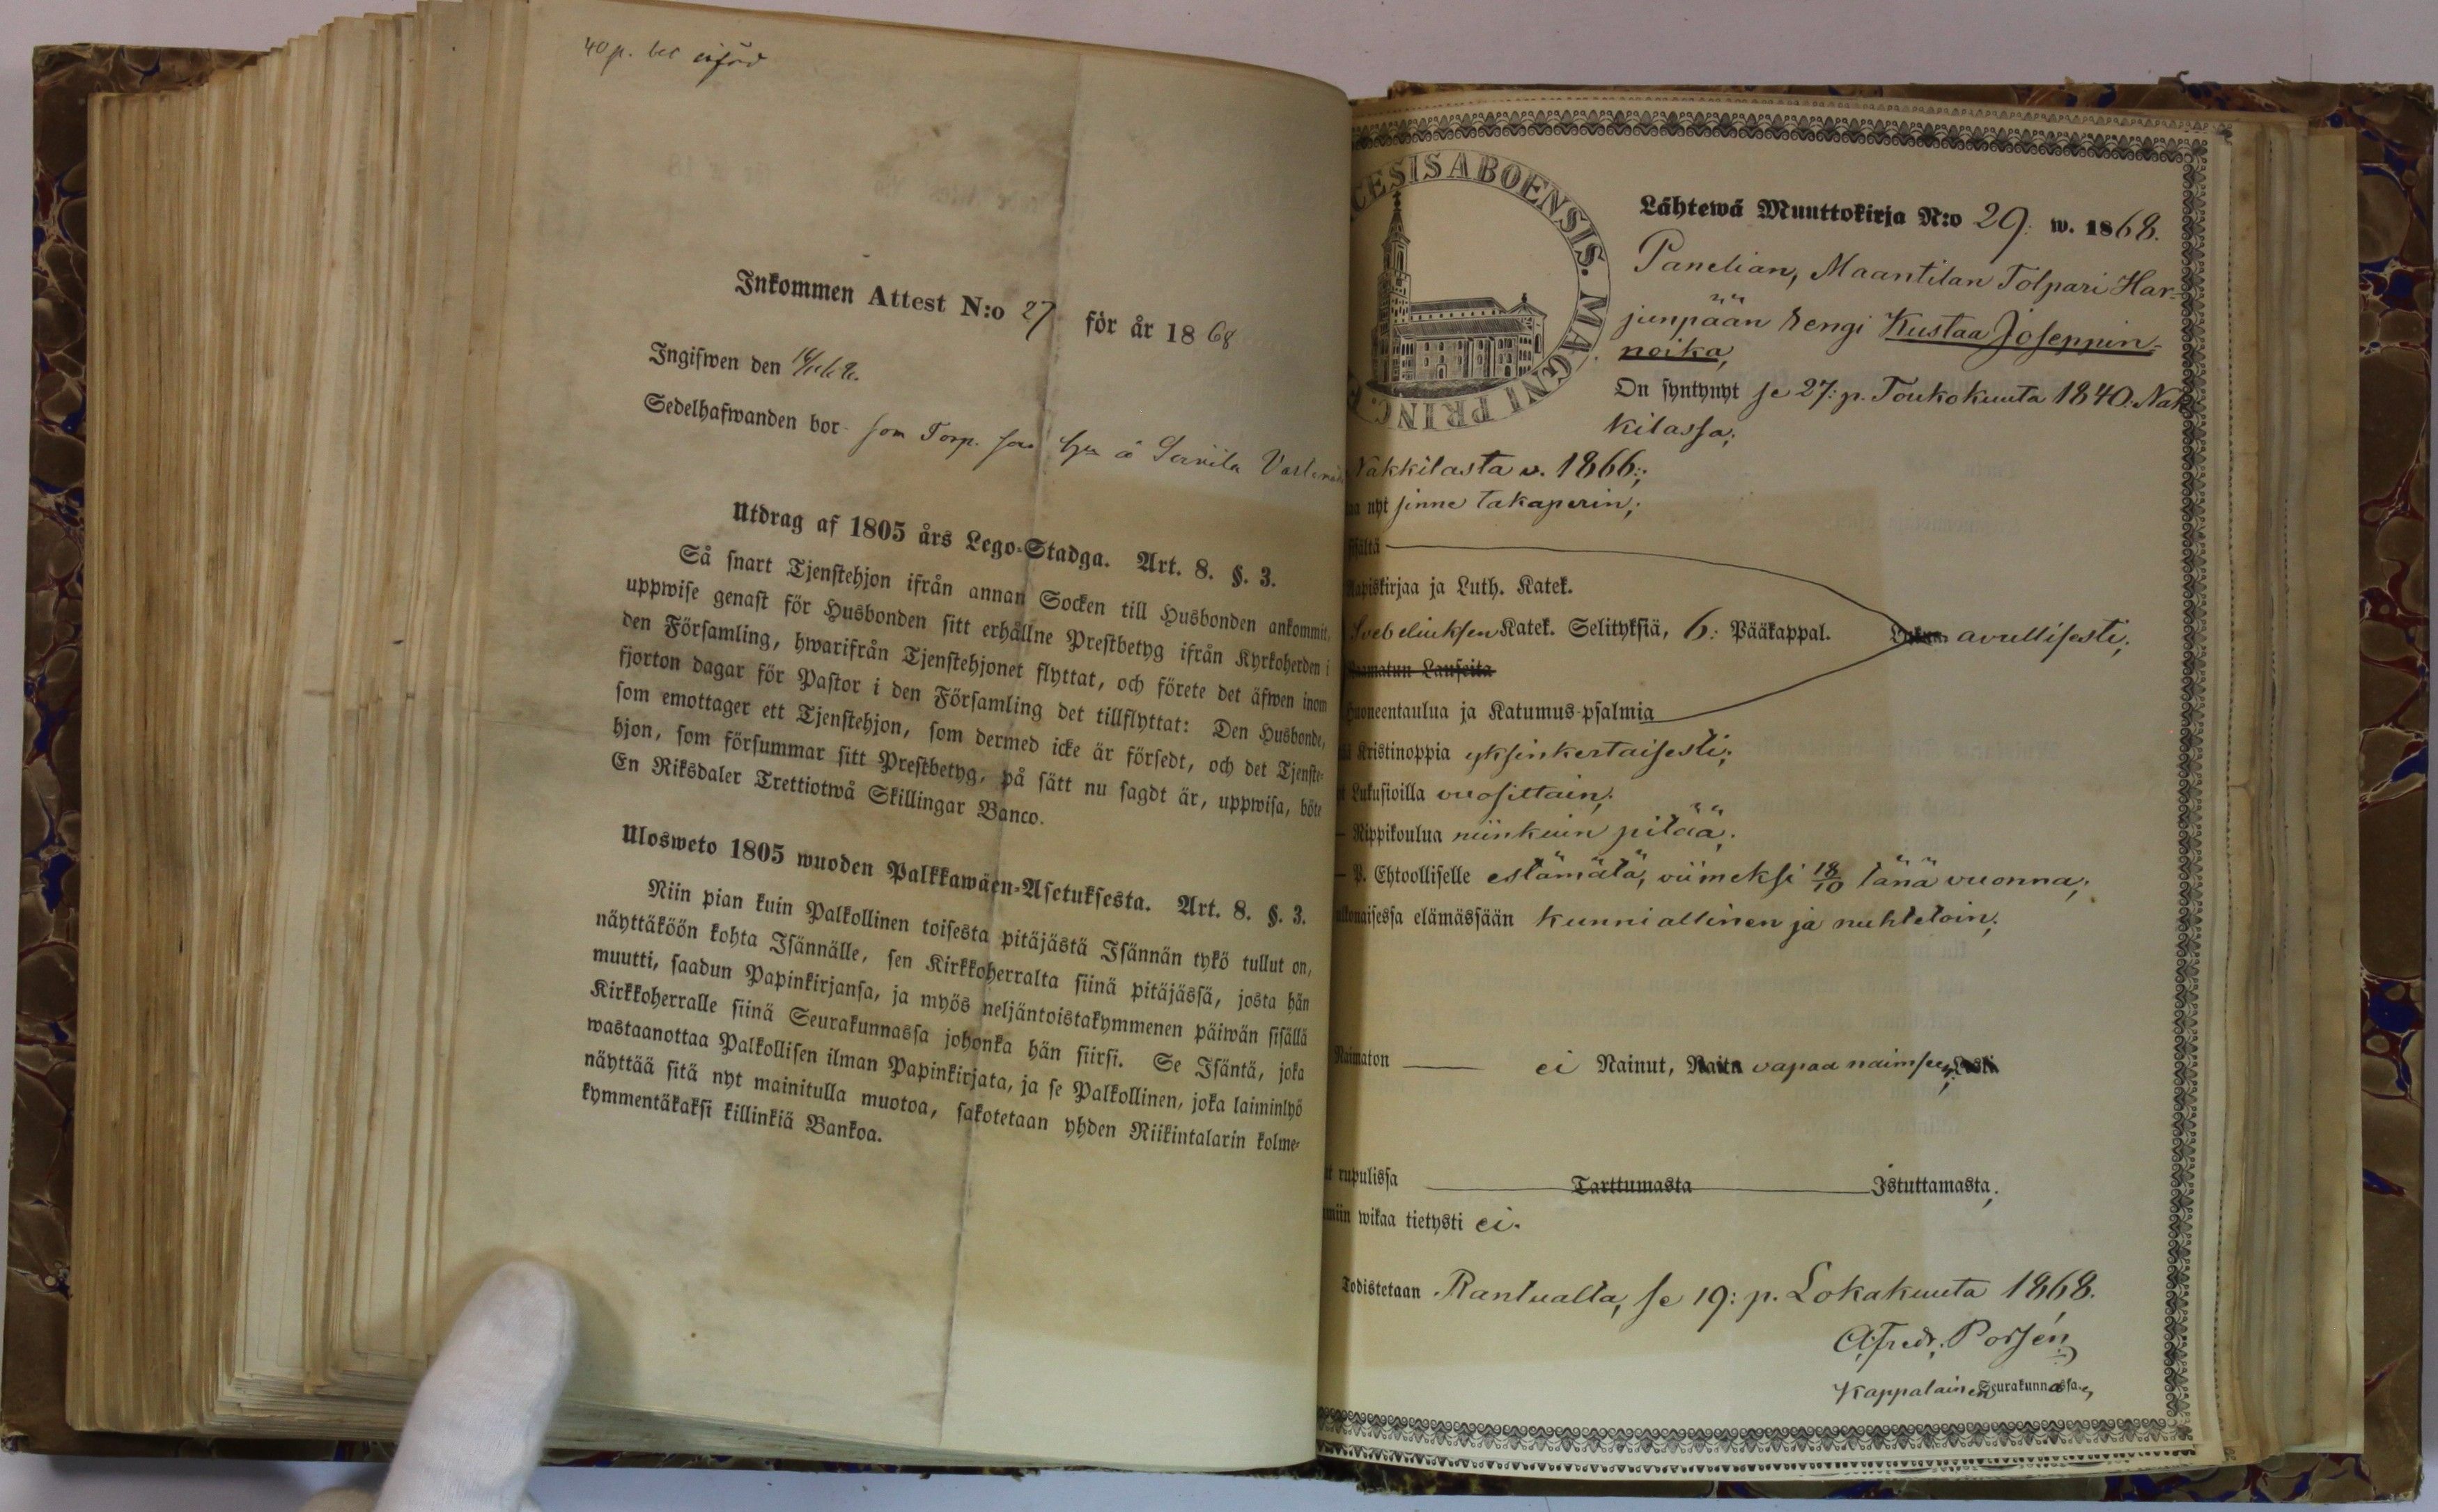 40 p.
Inkommen Attest N:o 27 för år 1868
Ingifwen den
Sedelhafwanden bor som Torp.
Utdrag af 1805 års Lego-Stadga. Art. 8. §. 3.
Så snart Tjenstehjon ifrån annan Socken till Husbonden ankommit,
uppwise genast för Husbonden sitt erhållne Prestbetyg ifrån Kyrkoherden i
den Församling, hwarifrån Tjenstehjonet flyttat, och förete det äfwen inom
fjorton dagar för Pastor i den Församling det tillflyttat: Den Husbonde,
som emottager ett Tjenstehjon, som dermed icke är försedt, och det Tjenste-
hjon, som försummar sitt Prestbetyg, på sätt nu sagdt är, uppwisa, böte
En Riksdaler Trettiotwå Skillingar Banco.
Ulosweto 1805 wuoden Palkkawäen-Asetuksesta. Art. 8. §. 3.
Niin pian kuin Palkollinen toisesta pitäjästä Isännän tykö tullut on,
näyttäköön kohta Isännälle, sen Kirkkoherralta siinä pitäjässä, josta hän
muutti, saadun Papinkirjansa, ja myös neljäntoistakymmenen päiwän sisällä
Kirkkoherralle siinä Seurakunnassa johonka hän siirsi. Se Isäntä, joka
wastaanottaa Palkollisen ilman Papinkirjata, ja se Palkollinen, joka laiminlyö
näyttää sitä nyt mainitulla muotoa, sakotetaan yhden Riikintalarin kolme-
kymmentäkaksi killinkiä Bankoa.
CESIS ABOENSIS. MAGNI PRINC.
Lähtewä Muuttokirja N:o 29. w. 1868.
Panelian, Maantilan Tolpari Har-
junpään rengi Kustaa Joseppin-
poika,
On syntynyt se 27: p. Toukokuuta 1840. Nak-
kilassa;
Nakkilasta v. 1866;
nyt sinne takaperin;
sisältä
Apiskirjaa ja Luth. Katek.
Svebeliuksen Katek. Selityksiä, 6: Pääkappal. avullisesti;
Raamatun Lauseita
Huoneentaulua ja Katumus-psalmia
Kristinoppia yksinkertaisesti;
Lukusioilla vuosittain;
— Rippikoulua niinkuin pitää;
— P. Ehtoolliselle estämätä, viimeksi 18/10 tänä vuonna;
elämässään kunniallinen ja nuhteloin;
Naimaton ei Nainut, vapaa naimseen;
rupulissa Tarttumasta Istuttamasta;
wikaa tietysti ei.
Todistetaan Rantualla, se 19: p. Lokakuuta 1868.
A. Fredr. Porsén
Kappalainen Seurakunnassa.